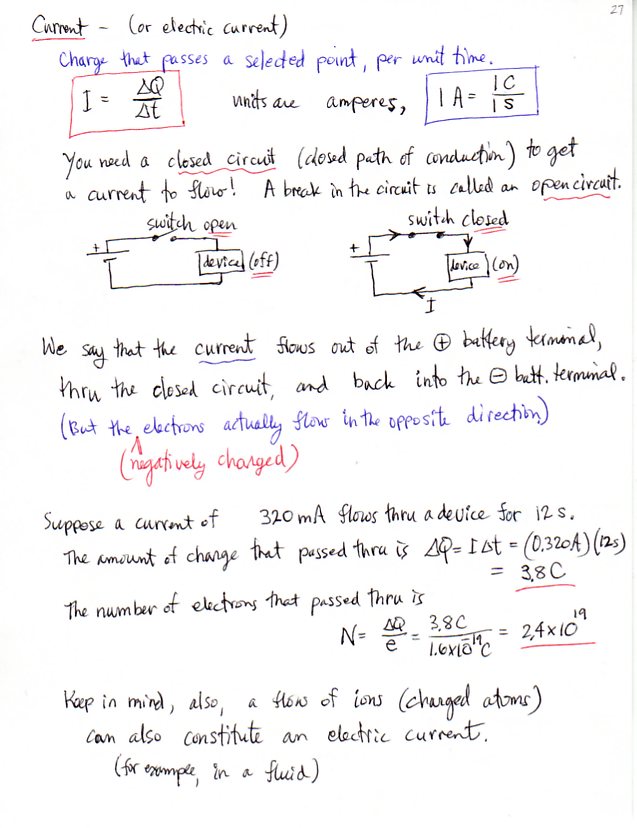 27
Current - (or electric current)
Charge that passes a selected point, per unit time.
I = ΔQ/Δt   units are amperes,   1 A = 1 C/1 S
You need a closed circuit (closed path of conduction) to get
a current to flow! A break in the circuit is called an open circuit.
switch open   switch closed
+   device (off)   +   device (on)
I
We say that the current flows out of the ⊕ battery terminal,
thru the closed circuit, and back into the ⊖ batt. terminal.
(But the electrons actually flow in the opposite direction)
(negatively charged)
Suppose a current of 320 mA flows thru a device for 12 s.
The amount of charge that passed thru is ΔQ = I Δt = (0.320A)(12s)
= 3.8 C
The number of electrons that passed thru is
N = ΔQ/e = 3.8C/1.6x10⁻¹⁹C = 2.4x10¹⁹
Keep in mind, also, a flow of ions (charged atoms)
can also constitute an electric current.
(for example, in a fluid)